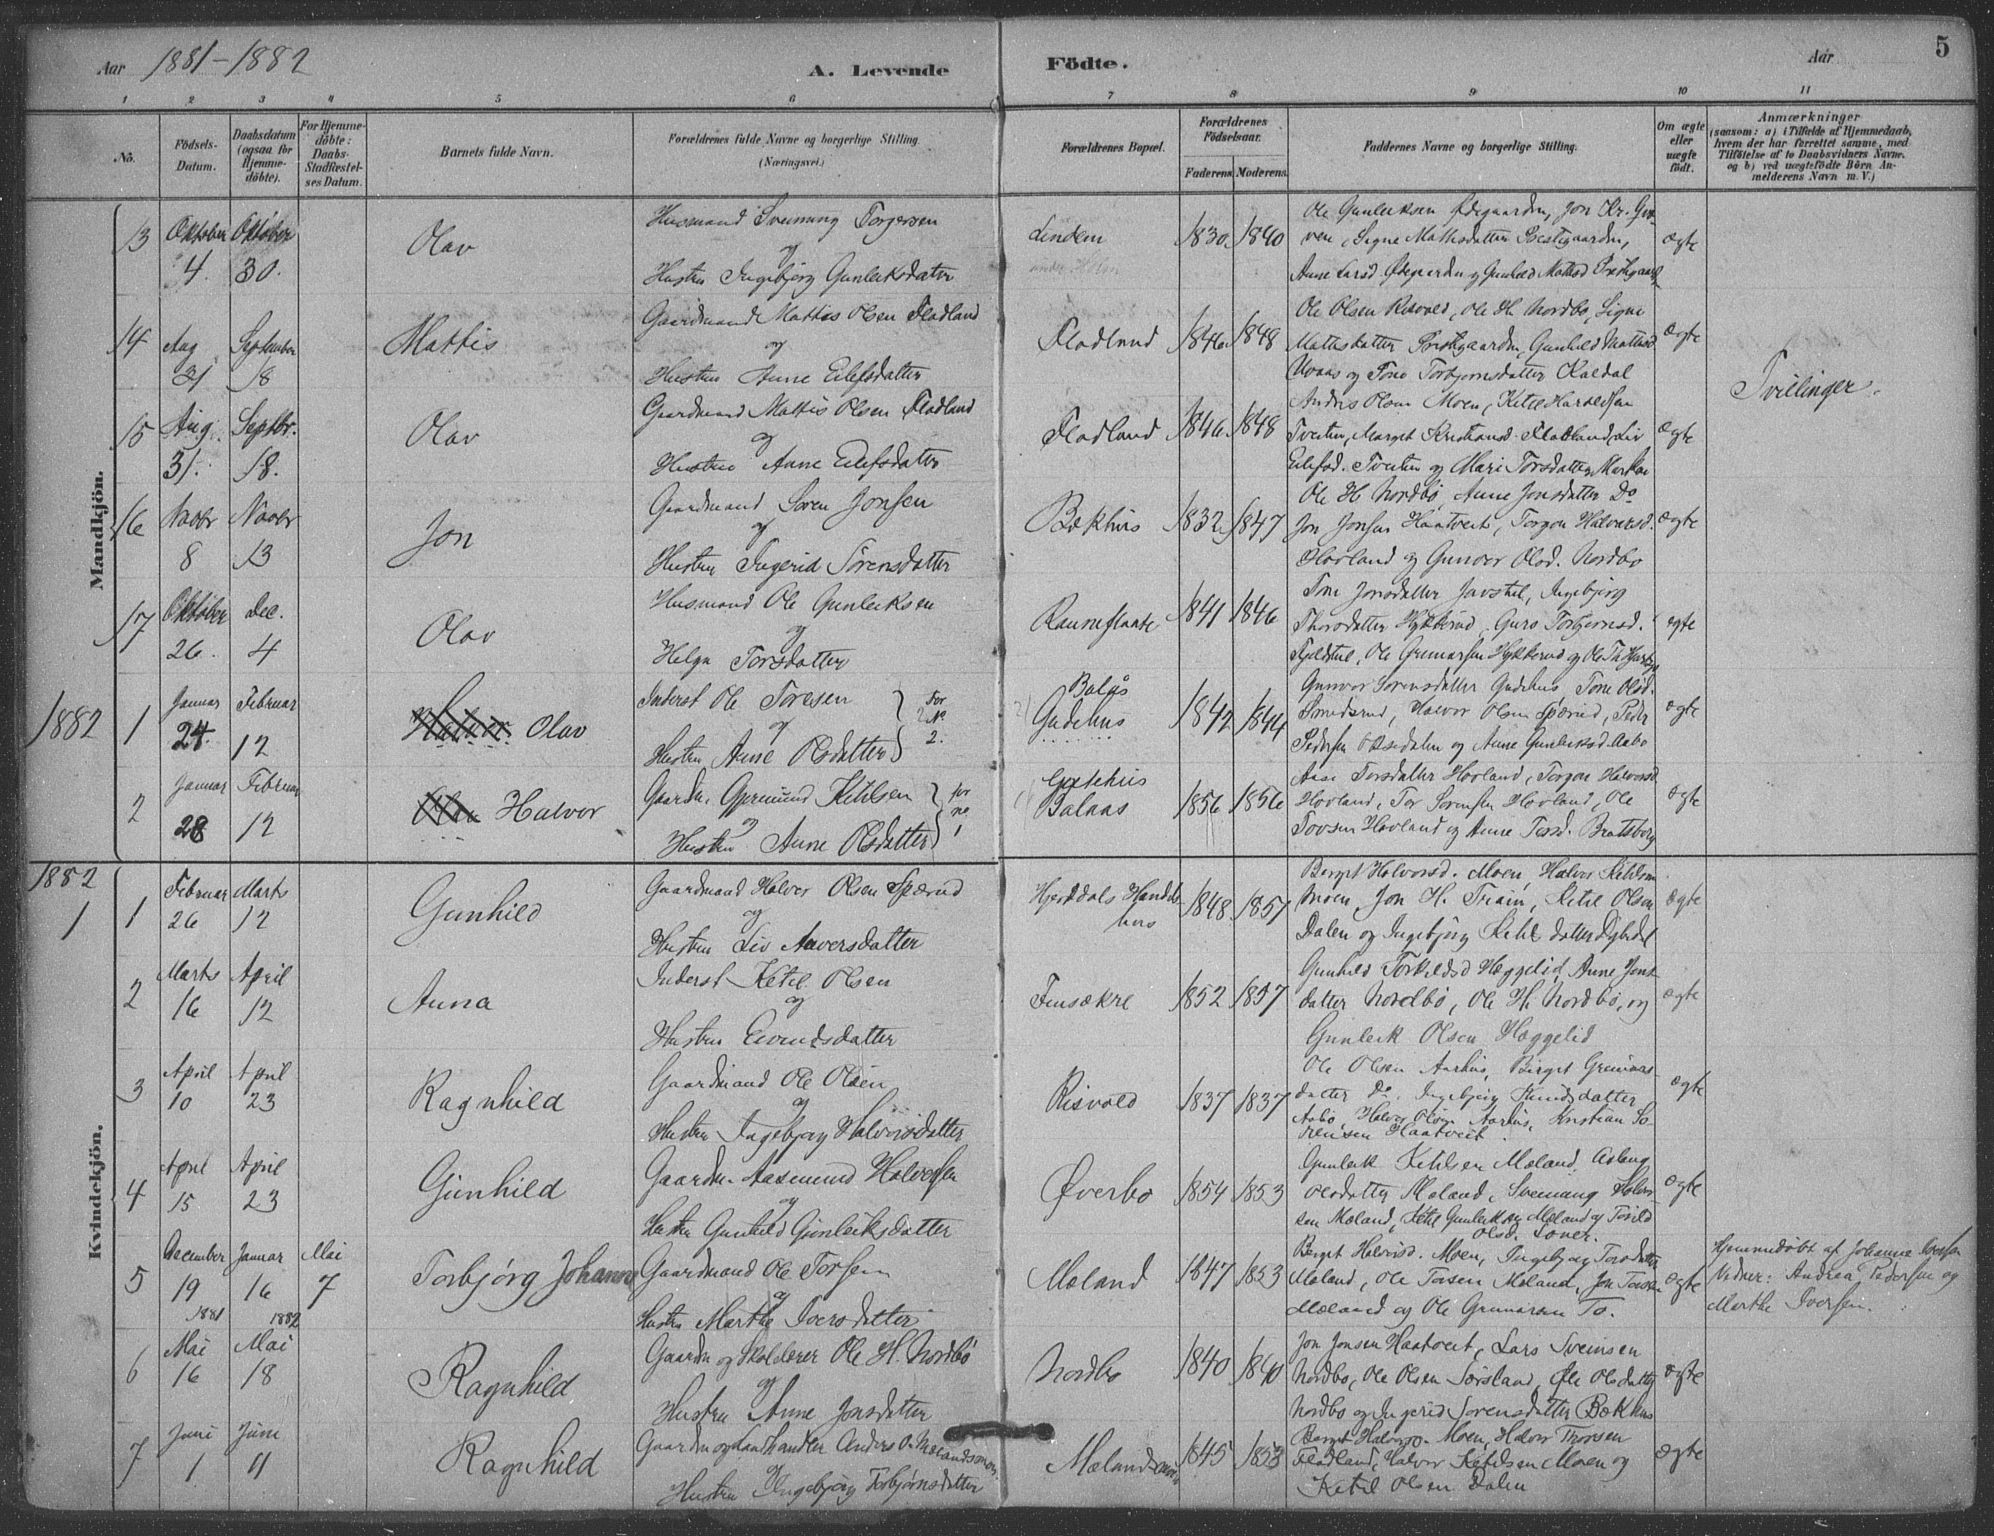 Aar 1881-1882
A. Levende Födte.
Aar
5
1 2 3 4 5 6 7 8 9 10 11
No.
Födsels-Datum.
Daabsdatum (ogsaa for Hjemme-döbte).
For Hjemme-döbte: Daabs-Stadfæstel-ses Datum.
Barnets fulde Navn.
Forældrenes fulde Navne og borgerlige Stilling (Næringsvei.)
Forældrenes Bopæl.
Forældrenes Födselsaar.
Faderens Moderens
Faddernes Navne og borgerlige Stilling.
Om ægte eller uægte födt.
Anmærkninger
(saasom: a) i Tilfælde af Hjemmedaab, hvem der har forrettet samme, med Tilföielse af to Daabsvidners Navne. og b) ved uægtefödte Börn Anmelderens Navn m. V.)
Mandkjön.
13 Oktober 4. Oktober 30. Olav
Husmand Sveinung Torgersen
og
Hustru Ingebjørg Gunleiksdatter
Lindem 1830 1840
Ole Gunleiksen Ødegaarden, Jon Kr. Gro-
ven, Signe Mathisdatter Prestegaarden,
Anne Larsd. Ødegaarden og Gunhild Mathisd Prestegaard
ægte
14 Aug 31 September 18 Mattis
Gaardmand Mattis Olsen Fladland
og
Hustru Anne Eilefsdatter
Fladland 1846 1848
Ole Olsen Risvold, Ole H. Nordbø, Signe
Mathisdatter Prestegaarden, Gunhild Mathisd
og Tone Torbjørnsdatter Kaldal
ægte
Tvillinger.
15 Aug. 31. Septbr. 18. Olav
Gaardmand Mattis Olsen Fladland
og
Hustru Anne Eilefsdatter
Fladland 1846 1848
Anders Olsen Moen, Ketil Haraldsen
Tveiten, Margit Kristiansd. Flatland, Liv
Eilefsd. Tveiten og Mari Torsdatter
ægte
16 Novbr 8 Novbr 13 Jon
Gaardmand Søren Jonsen
og
Hustru Ingerid Sørensdatter
Bækhus 1832 1847
Ole H Nordbø, Anne Jonsdatter Do
Jon Jonsen Haatveit, Torgon Halvorsd.
Hovland og Gunvor Olsd. Nordbø
ægte
17 Oktober 26. Dec. 4 Olav
Husmand Ole Gunleiksen
og
Helga Torsdatter
Rauneflaate 1841 1846
Tone Jonsdatter Javstøl, Ingebjørg
Thorsdatter Hykkerud, Guro Torbjørnsd.
Ole Grunarsen Hykkerud og Ole Th
ægte
1882
1 Januar 24. Februar 12 Halvor Olav
Inderst Ole Toresen
og
Hustru Anne Olsdatter
For No 2.
Balaas
Gudehus 1842 1844
Gunvor Sørensdatter Gudehus, Tone Olsd.
Smedsrud, Halvor Olsen Spærud, Peder
Pedersen og Anne Gunleiksd. Aabø
ægte
2 Januar 28 Februar 12 Olav Halvor
Gaardm. Gjermund Ketilsen
og
Hustru Anne Olsdatter
for no 1
Gudehus
Balaas 1856 1856
Aase Torsdatter Hovland, Torgon Halvorsd
Hovland, Tor Sørensen Hovland, Ole
Tovsen Hovland og Anne Torsd. Bratsberg
ægte
1882
1
Kvindekjön.
1 Februar 26 Marts 12 Gunhild
Gaardmand Halvor Olsen Spærud
og
Hustru Liv Aaversdatter
Hjerddals Handels
hus 1848 1857
Berget Halvorsd. Moen, Halvor Ketilsen
Moen, Jon H. Trion, Ketil Olsen
Dalen og Ingebjørg Ketilsdatter
ægte
2 Marts 16 April 12 Anna
Inderst Ketil Olsen
og
Hustru Eivindsdatter
Finsækre 1852 1857
Gunhild Torkildsd Hæggelid, Anne Jons-
datter Nordbø, Ole H. Nordbø, og
Gunleik Olsen Hæggelid
ægte
3 April 10 April 23 Ragnhild
Gaardmand Ole Olsen
og
Hustru Ingebjørg Halvorsdatter
Risvold 1837 1837
Ole Olsen Aarhus, Birget Grunars-
datter Do. Ingebjørg Knudsdatter
Aabø, Halvor Olsen Aarhus, Kristian Sø-
rensen Haatveit.
ægte
4 April 15 April 23 Gunhild
Gaardm. Aasmund Halvorsen
og
Hustru Gunhild Gunleiksdatter
Øverbø 1854 1853
Gunleik Ketilsen Mæland, Aslaug
Olsdatter Mæland, Sveinung Halvor-
sen Mæland, Ketil Gunleiksen Mæland og Torild
Olsd. Loner.
ægte
5 December 19 1881 Januar 16 1882 Mai 7 Torbjørg Johanne
Gaardmand Ole Torsen
og
Hustru Marthe Iversdatter
Mæland 1847 1853
Berget Halvorsd. Moen, Ingebjørg Torsdatter
Mæland, Ole Torsen Mæland, Jon Torsen
Mæland og Ole Grunarsen To.
ægte
Hjemmedøbt af Johanne Iversen
Vidner: Andrea Pedersen og
Marthe Iversen.
6 Mai 16 Mai 18 Ragnhild
Gaardm og Skolelærer Ole H. Nordbø
og
Hustru Anne Jonsdatter
Nordbø 1840 1840
Jon Jonsen Haatveit, Lars Sveinsen
Nordbø, Ole Olsen Sørsland, Øle Olsdatter
Nordbø og Ingerid Sørensdatter Bækhus
ægte
7 Juni 1 Juni 11 Ragnhild
Gaardm og Landhandler Anders O. Mælandsmoen
Hustru Ingebjørg Torbjørnsdatter
Mælandsmoen 1845 1853
Berget Halvorsd. Moen, Halvor Thorsen
Fladland, Halvor Ketilsen Moen og
Ketil Olsen Dalen
ægte